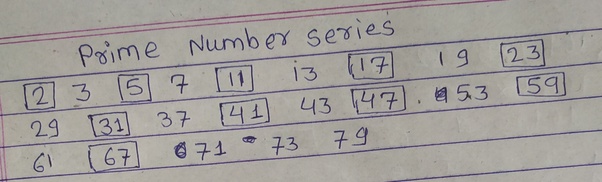 Prime Number series
2 3 5 7 11 13 17 19 23
29 31 37 41 43 47. 53 59
61 67 71 73 79